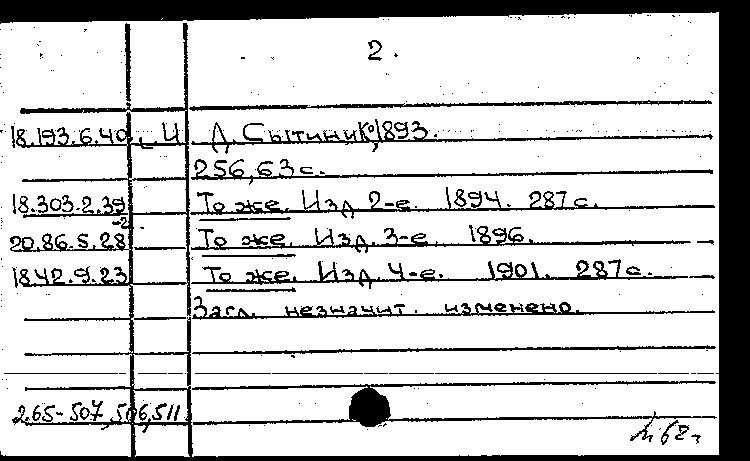 2.
18.193.6.40 И. Д. Сытин и К°, 1893.
256, 63 с.
18.303.2.39 То же. Изд. 2-е. 1894. 287 с.
20.86.5.28-2 То же. Изд. 3-е. 1896.
18.42.9.23 То же. Изд. 4-е. 1901. 287 с.
Загл. незначит. изменено.
2.65-507, 506, 511.
68